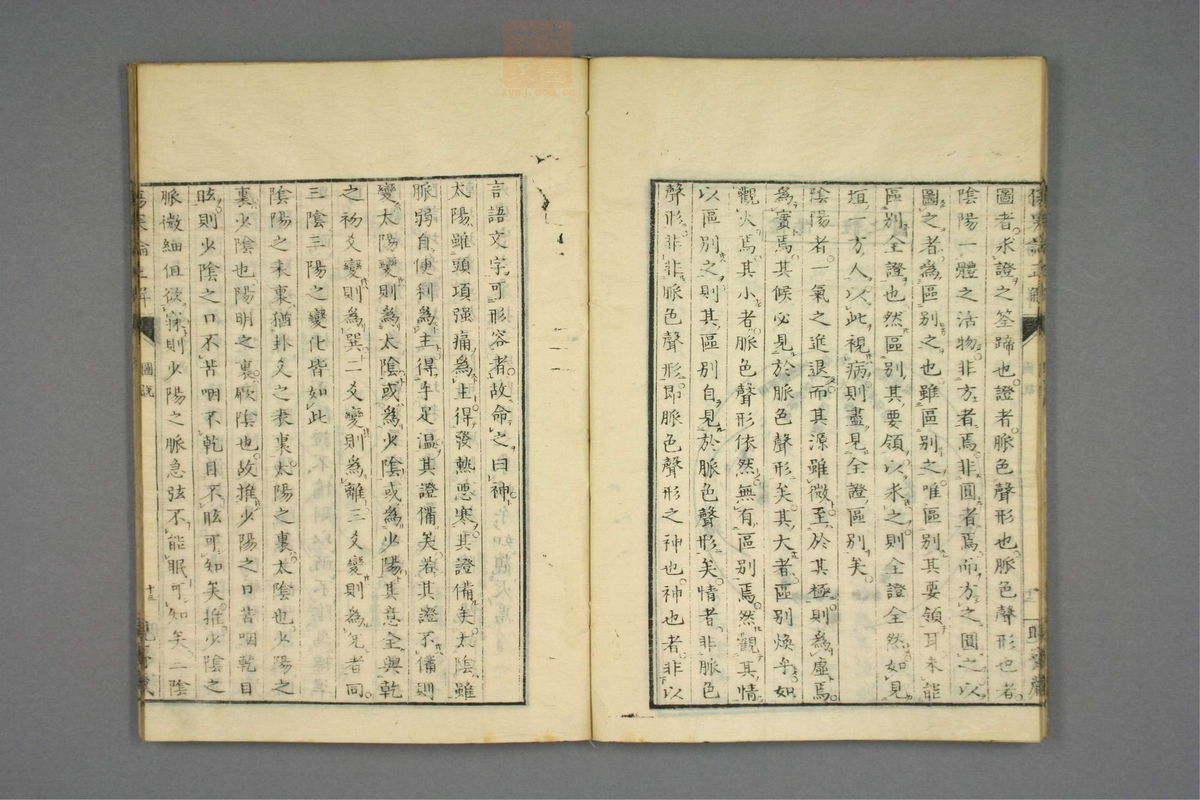 圖者求證之筌蹄也證者脈色聲形也脈色聲形也者
陰陽一體之活物非方者焉非圓者焉而方之圓之以
圖之者爲區別之也雖區別之唯區別其要領耳未能
區別全證也然區別其要領以求之則全證全然如見
垣一方人以此視病則盡見全證區別矣
陰陽者一氣之進退而其源雖微至於其極則爲虛焉
爲實焉其候必見於脈色聲形矣其大者區別煥乎如
觀火焉其小者脈色聲形依然無有區別焉然觀其情
以區別之則其區別自見於脈色聲形矣情者非脈色
聲形非非脈色聲形即脈色聲形之神也神也者非以
言語文字可形容者故命之曰神
太陽雖頭項强痛爲主得發熱惡寒其證備矣太陰雖
脈弱自便利爲主得手足溫其證備矣若其證不備則
變太陽變則爲太陰或爲少陰或爲少陽其意全與乾
之初爻變則爲巽二爻變則爲離三爻變則爲兌者同
三陰三陽之變化皆如此
陰陽之表裏猶卦爻之表裏太陽之裏太陰也少陽之
裏少陰也陽明之裏厥陰也故推少陽之口苦咽乾目
眩則少陰之口不苦咽不乾目不眩可知矣推少陰之
脈微細但欲寐則少陽之脈急弦不能眠可知矣二陰
圖說
十三